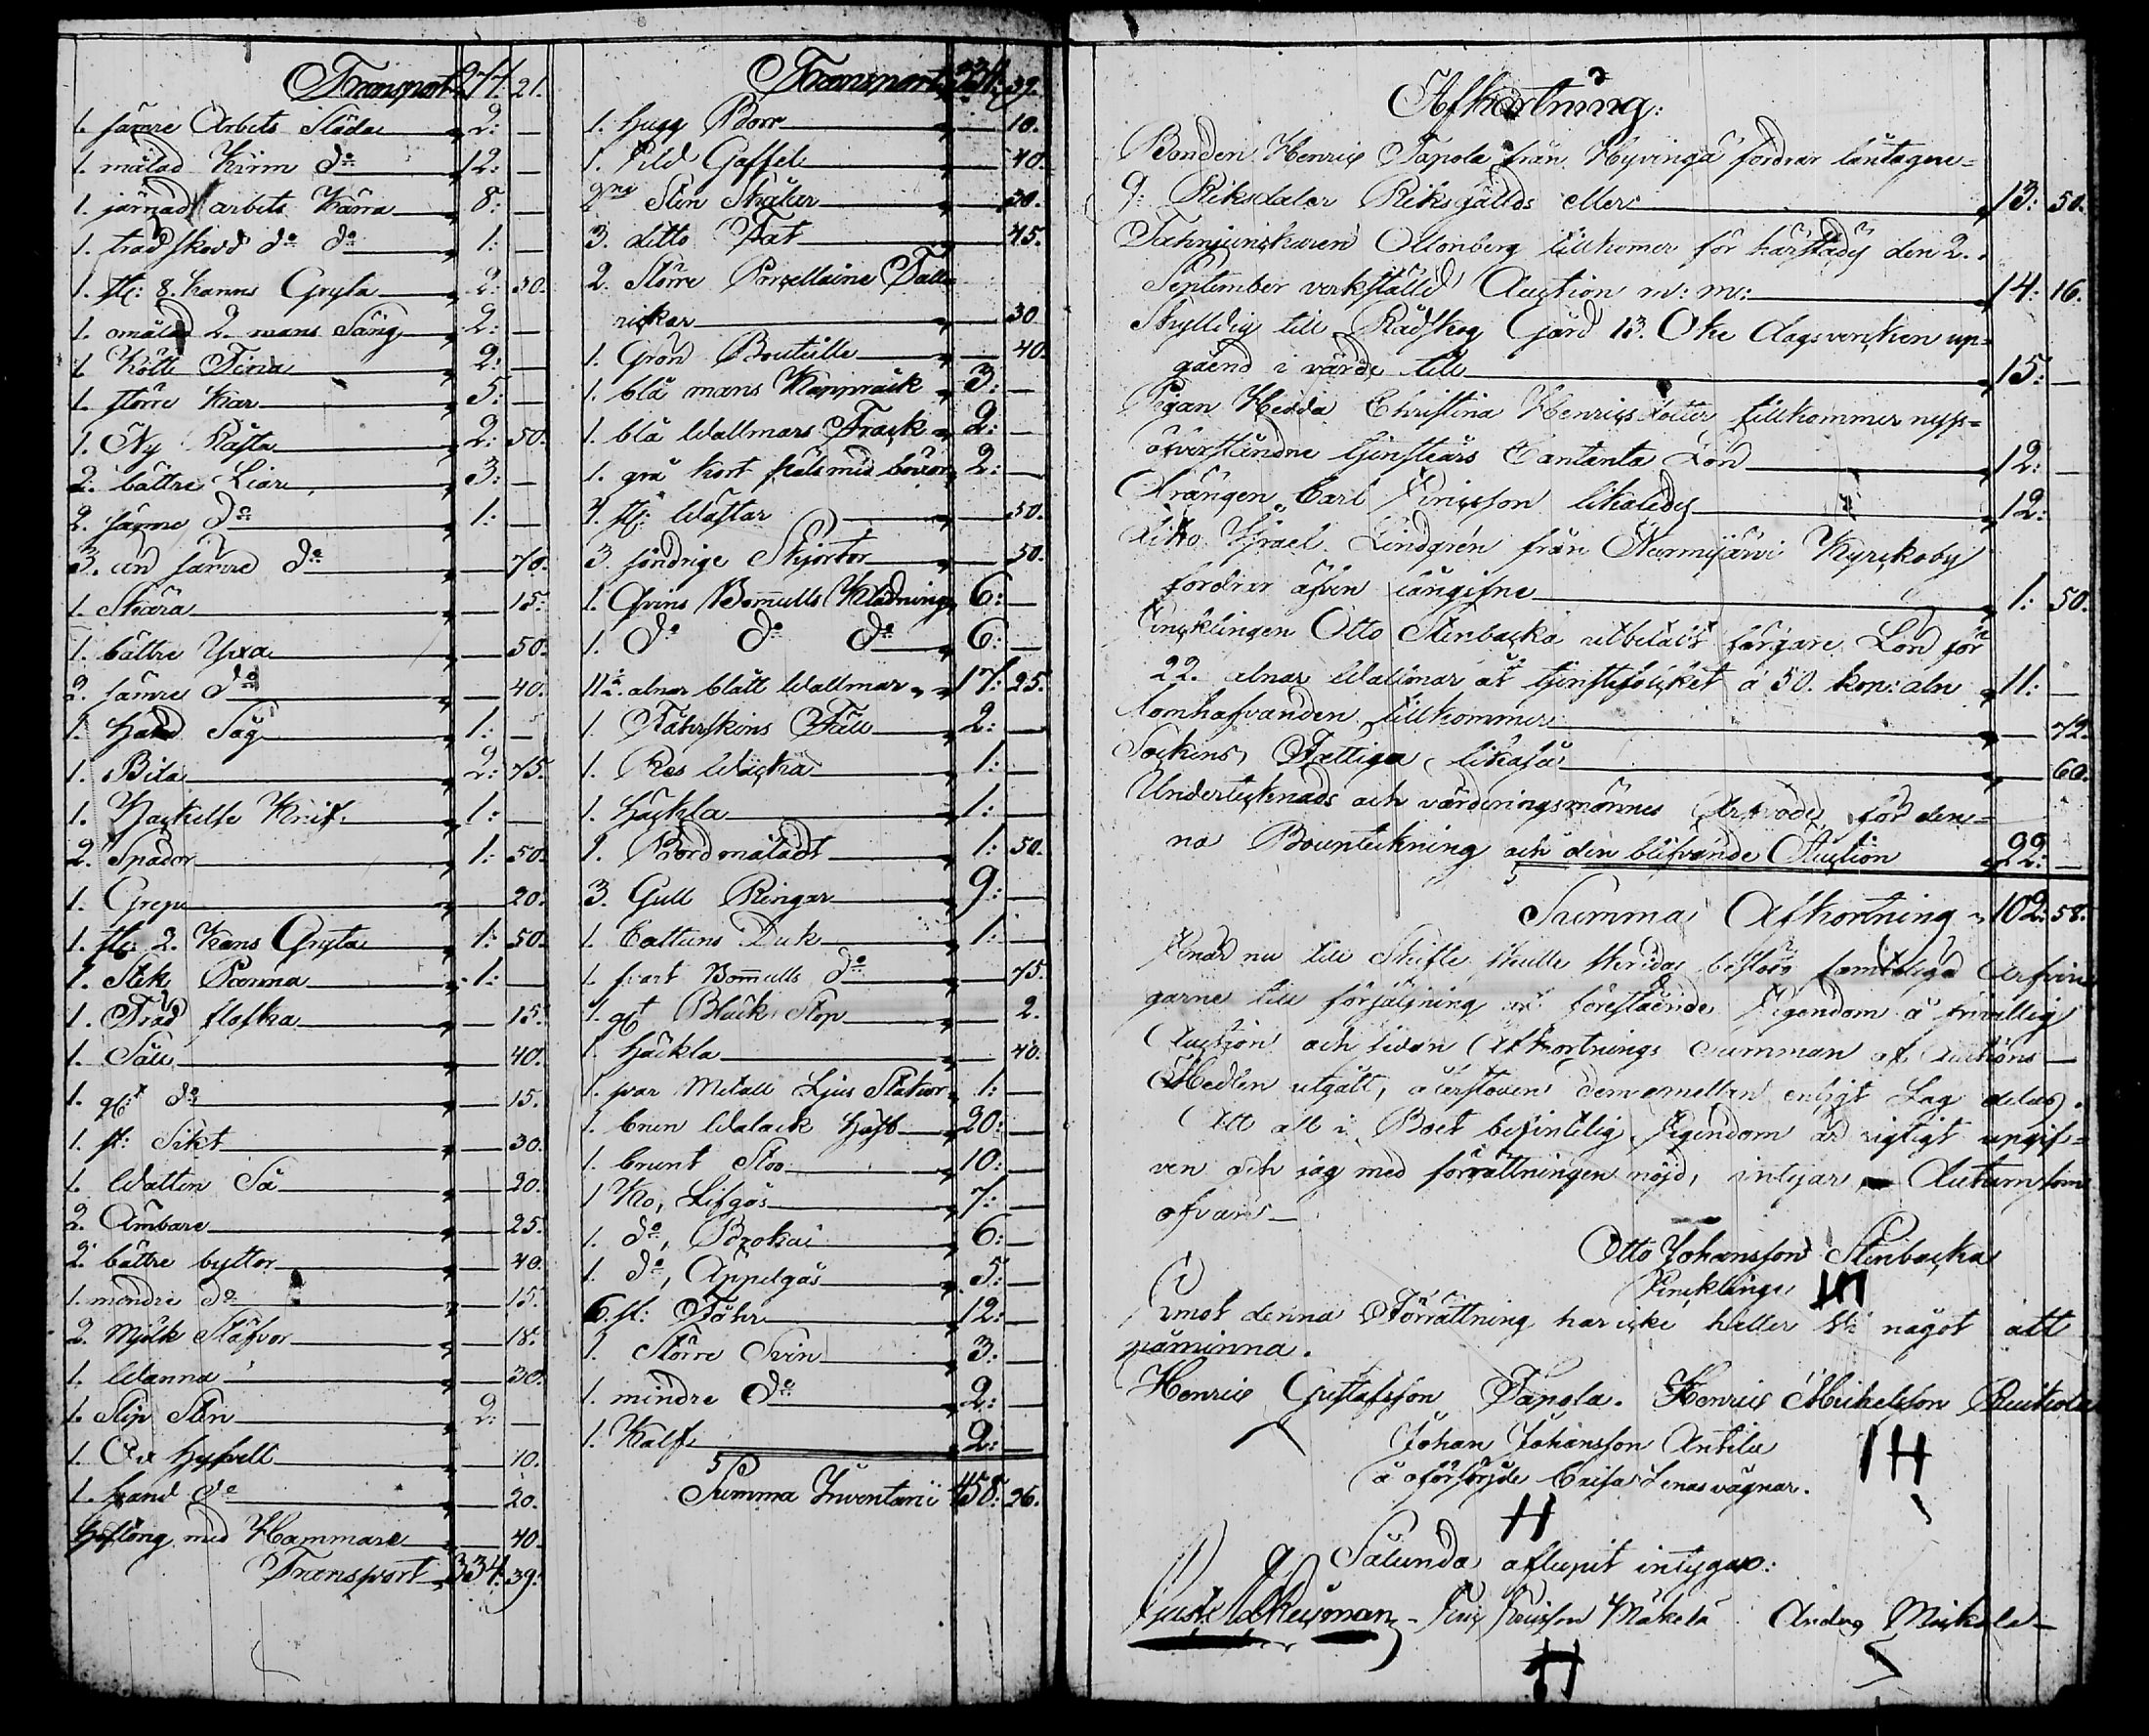 Transport 277. 21.
1. sämre Arbets Släda 2: —
1. målad Kärm do 12: —
1. järnad arbets Kärra 8: —
1. träd skodd do do 1: —
1. st: 8. kanns Gryta 2: 30.
1. omålad 2 mans Säng 2: —
1. Kött Tina 2: —
1. större Kar 5: —
1. Ny 2: 50.
2. bättre Liar 3: —
2. sämre do 1: —
3. än sämre do — 70.
1. Skära — 15.
1. bättre Yxa — 50.
2. sämre do — 40.
1. Hand Såg 1: —
1. Bila 2: 75.
1. Hackelse Knif 1: —
2. Spador 1: 50.
1. Grepe — 20.
1. st: 2. Kans Gryta 1: 50.
1. Stek Panna 1: —
1. Träd — 15.
1. Såll — 40.
1. gt do — 15.
1. st: Sikt — 30.
1. Watten Så — 20.
2. Ämbare — 25.
2. bättre byttor — 40.
1. mindre do — 15.
2. Mjölk Stäfvor — 18.
1. Wanna — 30.
1. Slip Sten 2: —
1. Ox Hyfvell — 10.
1. hand do — 20.
Hoftång med Hammare — 40.
Transport 334. 39.
Transport 334. 39.
1. Hugg Borr — 10.
1. Eld Gaffel — 40.
2ne Sten Skålar — 20.
3. ditto Fat — 45.
2. Större Porcellaine Talle
rickar — 30
1. Grön Bouteille — 40.
1. blå mans Kappråck 3: —
1. blå Wallmars Frack 2: —
1. grå kort päls med 2: —
4. st: Wästar — 50.
3. söndrige Skjortor — 50.
1. Qvins Bomulls Klädning 6: —
1. do do do 6: —
11½ alnar blått Wallmar 17: 25.
1. Fåhrskins Fäll 2: —
1. Res Wäcka 1: —
1. Häckla 1: —
1. Bord måladt 1: 50.
3. Gull Ringar 9: —
1. Cattuns Duk 1: —
1. svart Bomulls do — 75.
1. gt Bläck Stop — 2.
1. Häckla — 40.
1. par Metall Ljus Stakar 1: —
1. brun Walack Häst 20: —
1. brunt Stoo 10: —
1 Ko, Lifgås 7: —
1. do, Brokai 6: —
1. do, Äppelgås 5: —
6. st: Fåhr 12: —
1. Större Svin 3: —
1. mindre do 2: —
1. Kalf 2: —
Summa Inventarii 458: 26.
Afkortning:
Bonden Henric Tapola från Hyvinga fordrar låntagne
9: Riksdaler Riksgällds eller 13: 50.
Fahnjunkaren Ottonberg tillkomer för härstädes den 2.
September verkställd Auction m: m: 14: 16.
Skylldig till Rådskog Gård 13. Öke dagsverken up=
gåend i värde till 15: —
Pigan Hedda Christina Henricsdotter tillkommer nyss=
öfverståndne tjensteårs Contanta Lön 12: —
Drängen Carl Ericsson likaledes 12:
ditto Israel Lindgrén från Nurmijärvi Kyrckoby
fordrar äfven 1: 50.
Encklingen Otto Stenbacka utbetalt färgare Lön för
22. alnar Wallmar åt tjenstefolcket á 50. kop: aln 11: —
Domhafvanden tillkommer — 72.
Sockens Fattiga likaså — 60.
Undertecknads och värderingsmännes Arfvode för den=
na Boupteckning och den blifvande Auction 22: —
Summa Afkortning 102: 58.
Enär nu till Skifte skulle skridas beslöto samteliga Arfvin
garne till försäljning af förestående Egendom å frivillig
Auction och sedan Afkortnings Summan af Auctions
Medlen utgått, återstoden dem emellan enligt Lag delas.
Att all i Boet befintelig Egendom är rigtigt upgif=
ven och jag med förrättningen nöjd, intygar, Datum som
ofvan —
Otto Johansson Stenbacka
Enckling
Emot denna Förrättning har icke heller Vi något att
påminna.
Henric Gustafsson Tapola. Henric Michelsson
Johan Johansson Antila
å oförsörjde Caisa Lenas vägnar.
IH
H
Sålunda aflupit intygar:
Eric Ericsson Mäkelä Anders
H